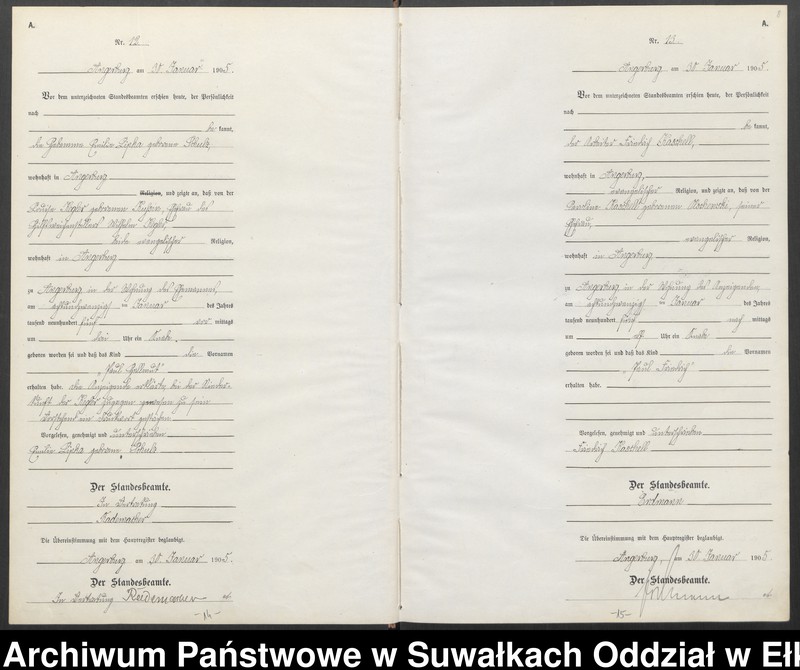 A.
Nr. 12
Angerburg am 30. Januar 1905.
Vor dem unterzeichneten Standesbeamten erschien heute, der Persönlichkeit
nach
be kannt,
die Hebamme Emilie Lipka geborene Schulz,
wohnhaft in Angerburg
Religion, und zeigte an, daß von der
geborenen Ehefrau des
Wilhelm
beide evangelischer Religion,
wohnhaft in Angerburg
zu Angerburg in der Wohnung des Ehemannes,
am achtundzwanzig ten Januar des Jahres
tausend neunhundert fünf vor mittags
um drei Uhr ein Knabe
geboren worden sei und daß das Kind die Vornamen
"Paul Hellmut"
erhalten habe. Die Anzeigende erklärte bei der Nieder-
kunft der zugegen gewesen zu sein
Vorstehend ein Druckwort gestrichen
Vorgelesen, genehmigt und unterschrieben
Emilie Lipka geborene Schulz
Der Standesbeamte.
In Vertretung
Rademacher
Die Übereinstimmung mit dem Hauptregister beglaubigt.
Angerburg am 30. Januar 1905.
Der Standesbeamte.
In Vertretung Rademacher
-14-
A.
Nr. 13
Angerburg am 30. Januar 1905.
Vor dem unterzeichneten Standesbeamten erschien heute, der Persönlichkeit
nach
be kannt,
der Arbeiter Friedrich
wohnhaft in Angerburg,
evangelischer Religion, und zeigte an, daß von der
geborenen seiner
Ehefrau,
evangelischer Religion,
wohnhaft in Angerburg
zu Angerburg in der Wohnung des Anzeigenden
am achtundzwanzig ten Januar des Jahres
tausend neunhundert fünf nach mittags
um elf Uhr ein Knabe
geboren worden sei und daß das Kind die Vornamen
"Paul Friedrich"
erhalten habe.
Vorgelesen, genehmigt und unterschrieben
Friedrich
Der Standesbeamte.
Erdmann
Die Übereinstimmung mit dem Hauptregister beglaubigt.
Angerburg, am 30. Januar 1905.
Der Standesbeamte.
Erdmann
-15-
Archiwum Państwowe w Suwałkach Oddział w Eł